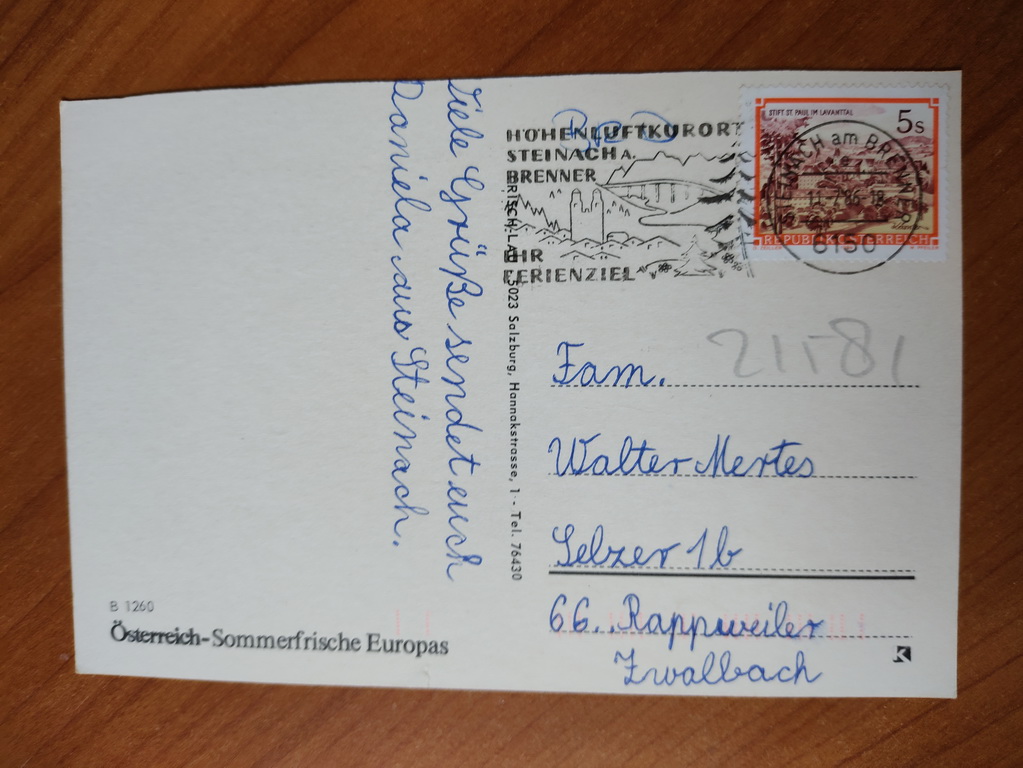 Viele Grüße sendet euch
Daniela aus Steinach.
B 1260
Österreich-Sommerfrische Europas
5023 Salzburg, Hannakstrasse, 1 - Tel. 76430
BRD
HÖHENLUFTKURORT
STEINACH A.
BRENNER
IHR
FERIENZIEL
STIFT ST. PAUL IM LAVANTTAL
5s
REPUBLIK ÖSTERREICH
STEINACH am BRENNER
6150
Fam.
Walter Mertes
Selzer 1b
66.. Rappweiler
Zwalbach